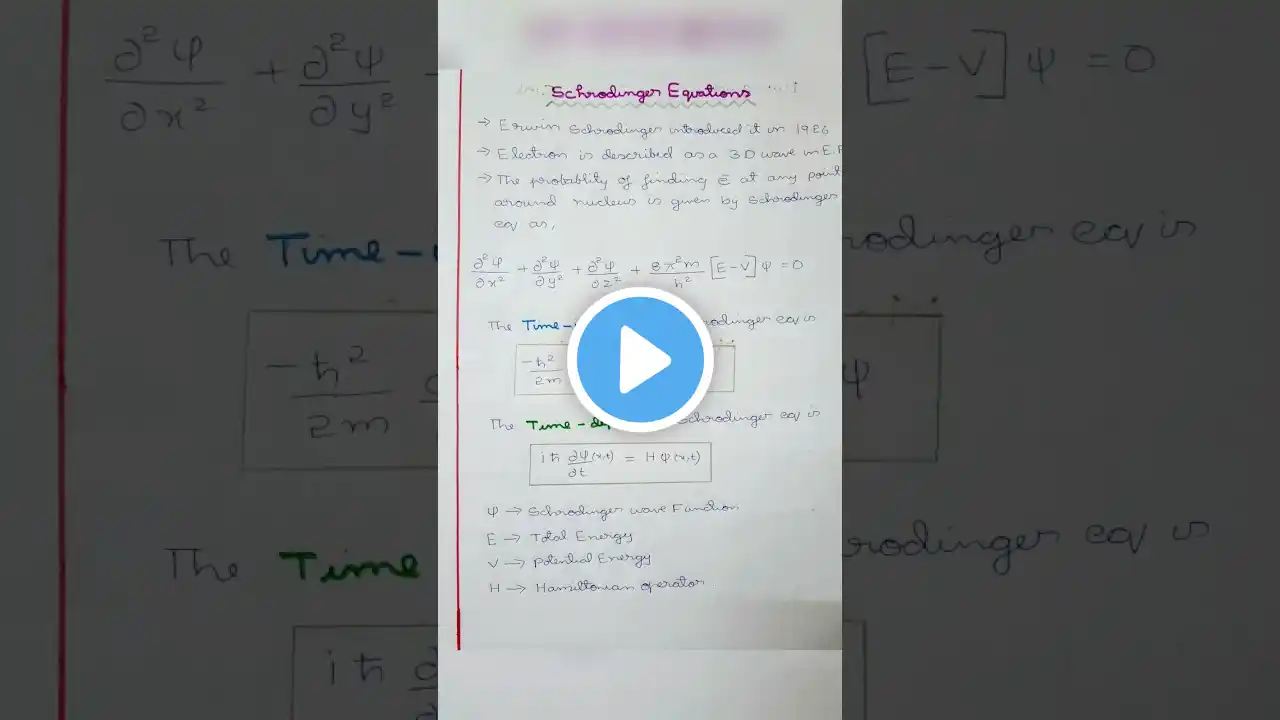 Schrodinger Equations
→ Erwin Schrodinger introduced it in 1926
→ Electron is described as a 3D wave in E.F
→ The probablity of finding ē at any point
around nucleus is given by Schrodinger
eq as,
∂²Ψ/∂x² + ∂²Ψ/∂y² + ∂²Ψ/∂z² + 8π²m/h² [E-V] Ψ = 0
The Time- rodinger eq is
-ħ²/2m
The Time-de Schrodinger eq is
iħ ∂Ψ(x,t)/∂t = HΨ(x,t)
Ψ → Schrodinger wave Function
E → Total Energy
V → Potential Energy
H → Hamiltonian operator